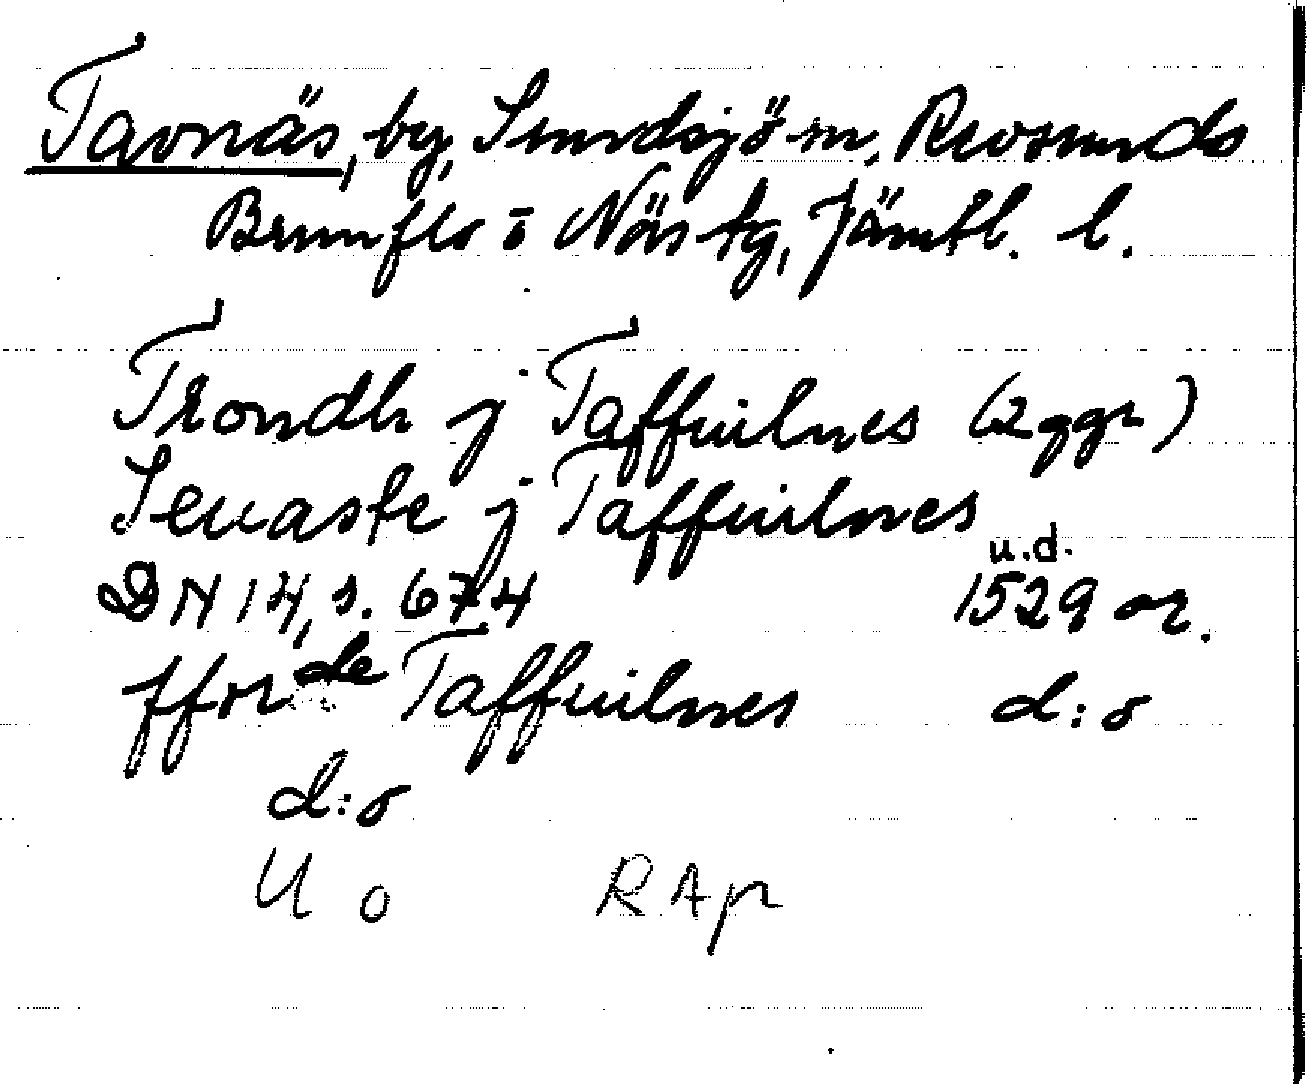 Tavnäs, by, Sundsjö sn, Revsunds
Brunflo o Näs tg, Jämtl. l.
Trondh j Taffuilnes (2 ggr)
Seuaste j Taffuilnes
u.d.
DN 14, s. 674 1529 or.
ffor de Taffuilnes d:o
d:o
U o RAp